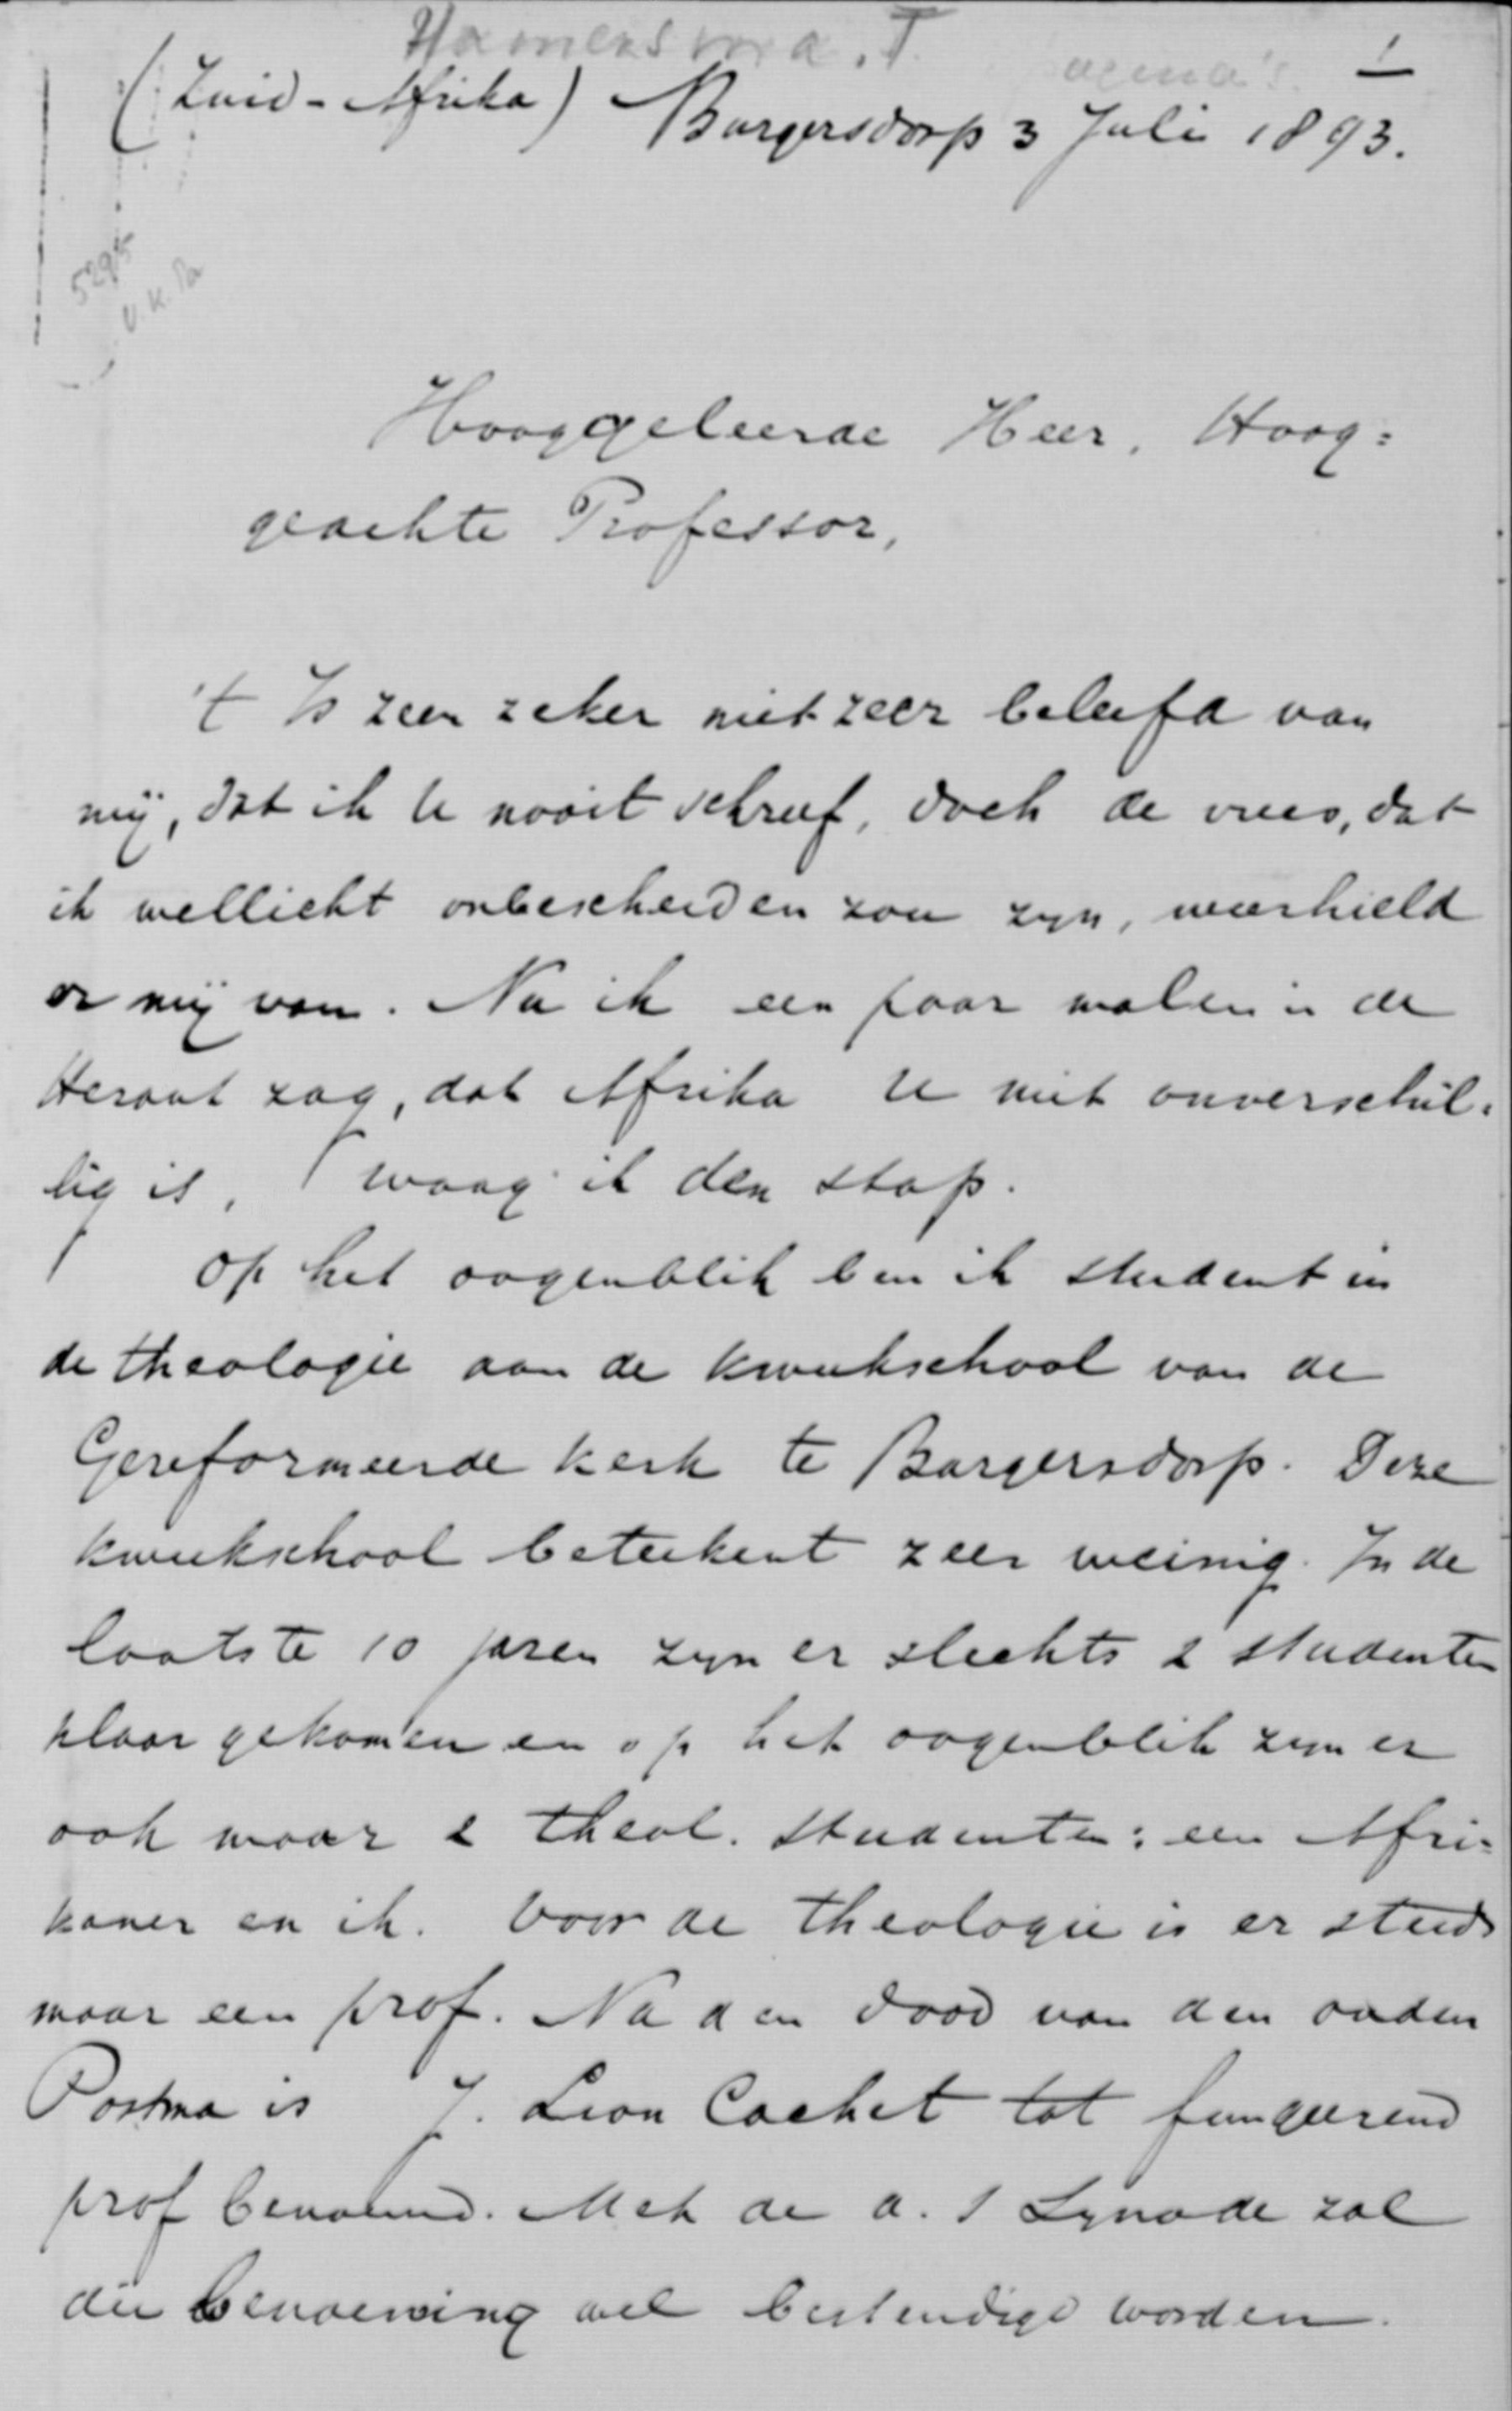 Hamersma. T.
1
(Zuid-Afrika) Burgersdorp 3 Juli 1893.
5295
Hooggeleerde Heer, Hoog=
geachte Professor,
't Is zeer zeker niet zeer beleefd van
mij, dat ik U nooit schreef, doch de vrees, dat
ik wellicht onbescheiden zou zyn, weerhield
er mij van. Nu ik een paar malen in de
Heraut zag, dat Afrika U niet onverschil=
lig is, waag ik den stap.
Op het oogenblik ben ik student in
de theologie aan de kweekschool van de
Gereformeerde kerk te Burgersdorp. Deze
kweekschool beteekent zeer weinig. In de
laatste 10 jaren zyn er slechts 2 studenten
klaar gekomen en op het oogenblik zyn er
ook maar 2 theol. studenten: een Afri=
kaner en ik. Voor de theologie is er steeds
maar een prof. Na den dood van den ouden
Postma is J. Lion Cachet tot fungeerend
prof benoemd. Met de a. s Synode zal
die benoeming wel bestendigd worden.